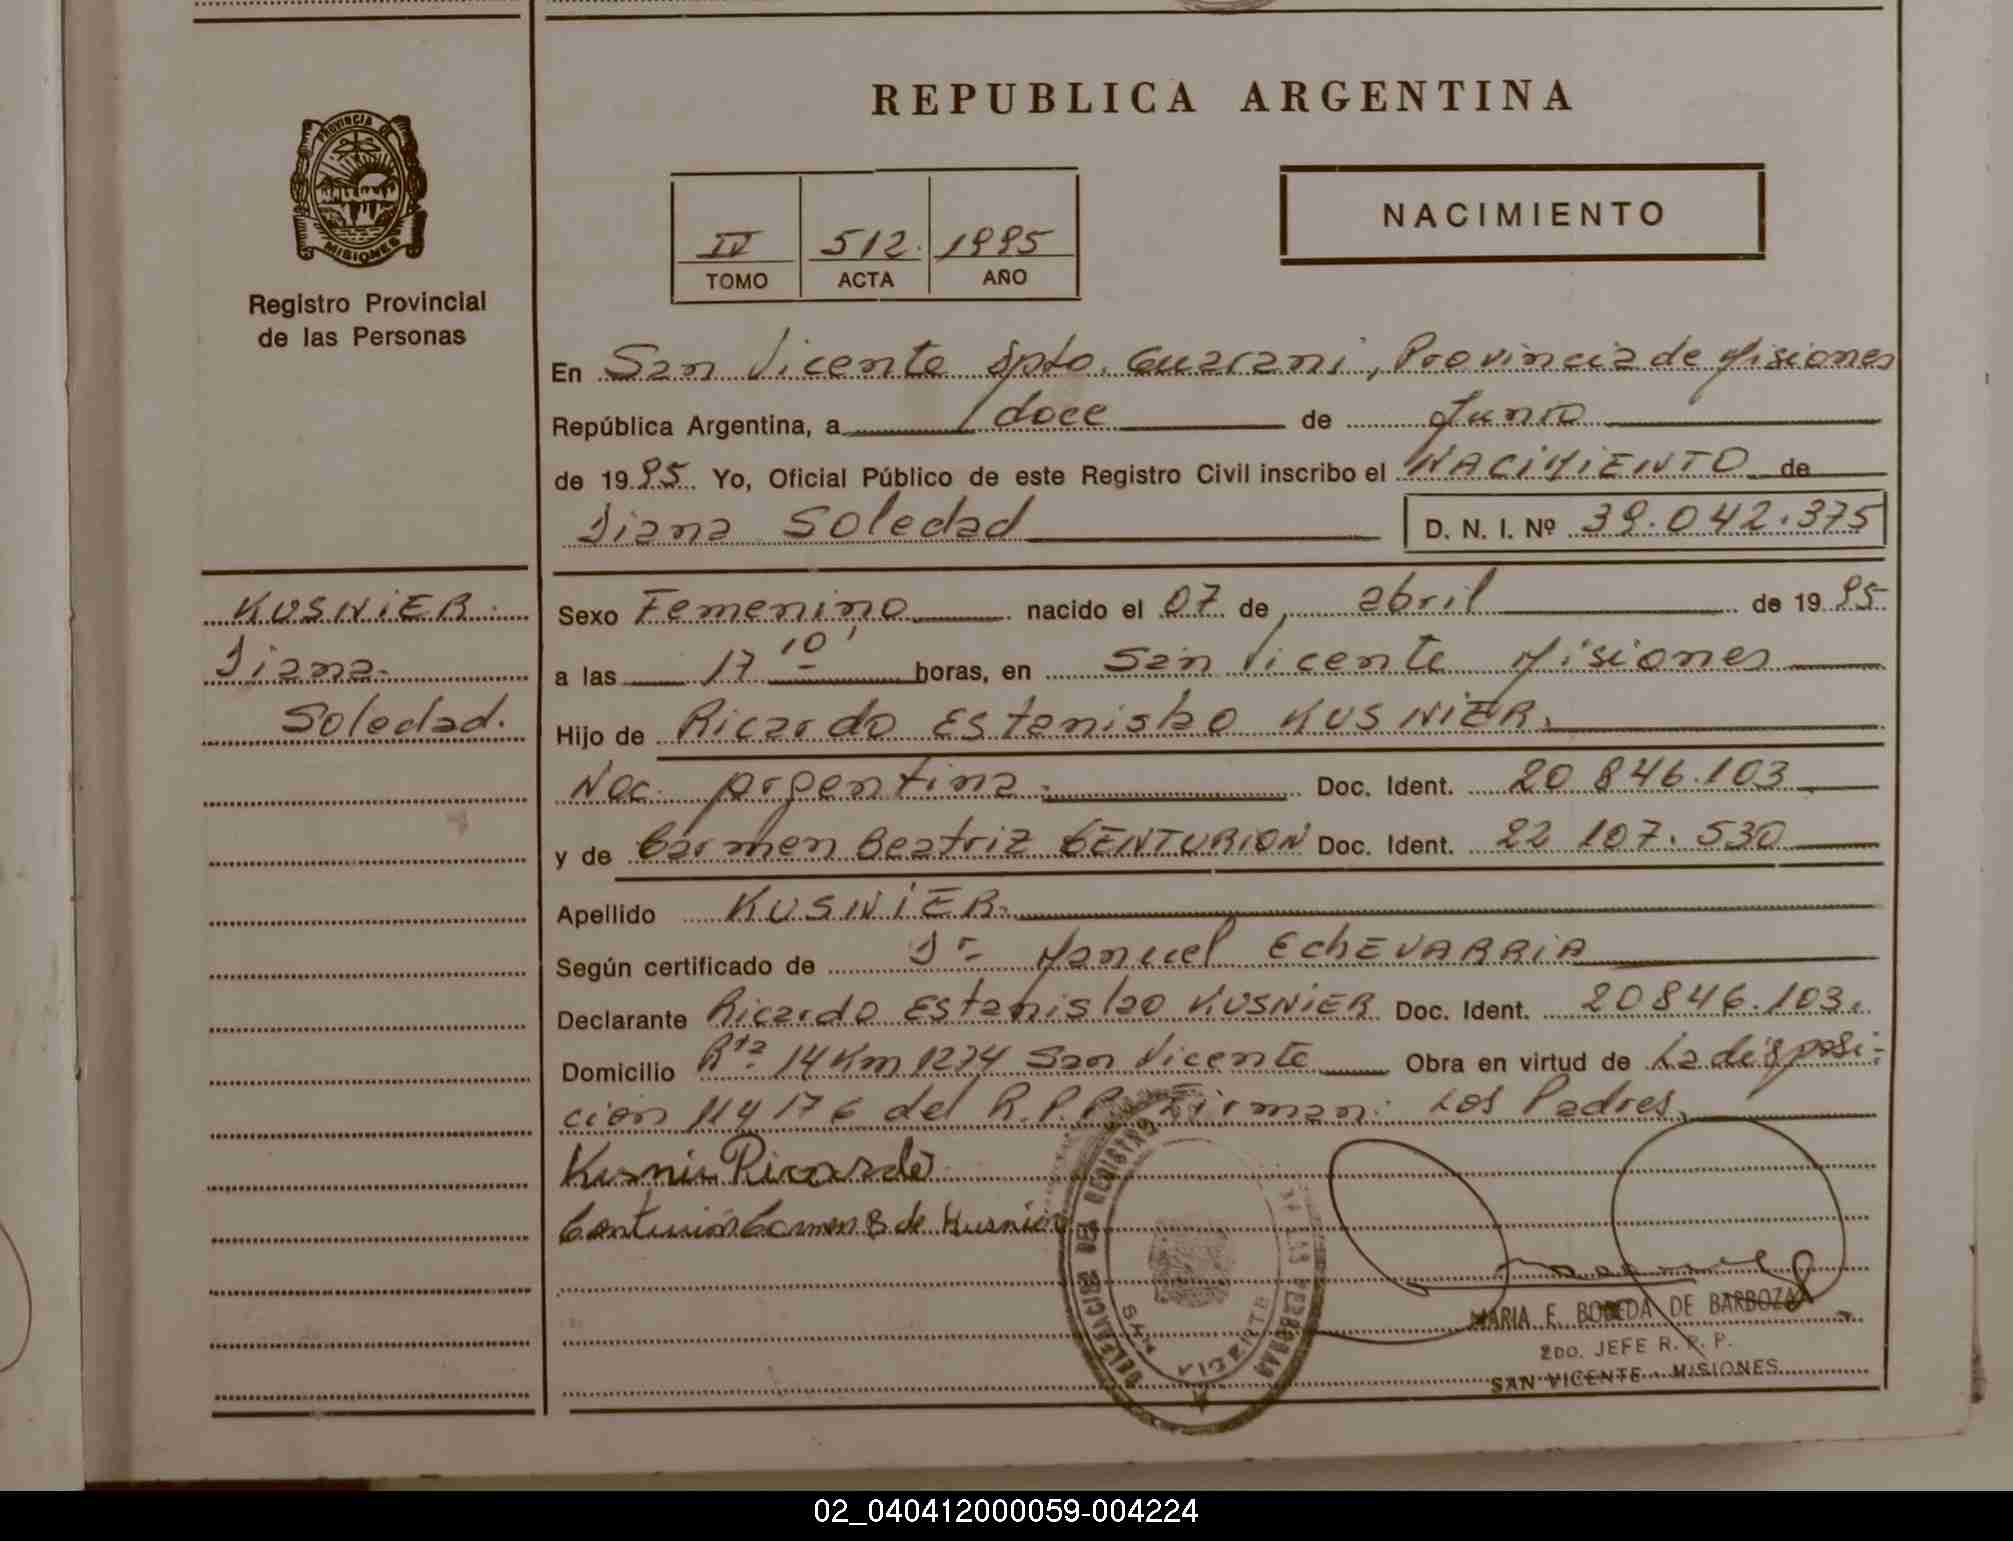 REPUBLICA ARGENTINA
PROVINCIA DE
MISIONES
Registro Provincial
de las Personas
NACIMIENTO
IV 512. 1995
TOMO ACTA AÑO
En San Vicente Dpto. Guarani, Provincia de Misiones
República Argentina, a doce de Junio
de 1995 Yo, Oficial Público de este Registro Civil inscribo el NACIMIENTO de
Diana Soledad D. N. I. Nº 39.042.375
KUSNIER.
Diana.
Soledad.
Sexo Femenino nacido el 07 de abril de 1995
a las 17 10' horas, en San Vicente Misiones
Hijo de Ricardo Estanislao KUSNIER.
Nac. argentina. Doc. Ident. 20 846.103
y de Carmen Beatriz CENTURION Doc. Ident. 22 107.530
Apellido KUSNIER.
Según certificado de Dr Manuel EchEVARRIA
Declarante Ricardo Estanislao KUSNIER Doc. Ident. 20846.103.
Domicilio Rta 14 Km 1274 San Vicente Obra en virtud de La disposi-
cion 114 176 del R.P.P. Firman: Los Padres.
Kusnir Ricardo
Centurión Carmen B de Kusnier
DELEGACION DEL REGISTRO DE LAS PERSONAS
SAN VICENTE
MARIA E. BOBEDA DE BARBOZA
2DO. JEFE R. P. P.
SAN VICENTE - MISIONES
02_040412000059-004224